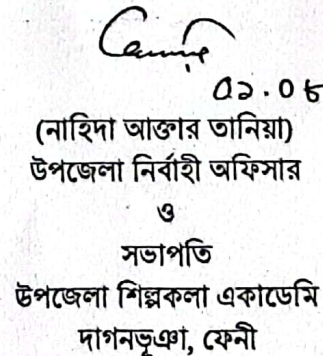 ০১.০৮
(নাহিদা আক্তার তানিয়া)
উপজেলা নির্বাহী অফিসার
ও
সভাপতি
উপজেলা শিল্পকলা একাডেমি
দাগনভূঞা, ফেনী